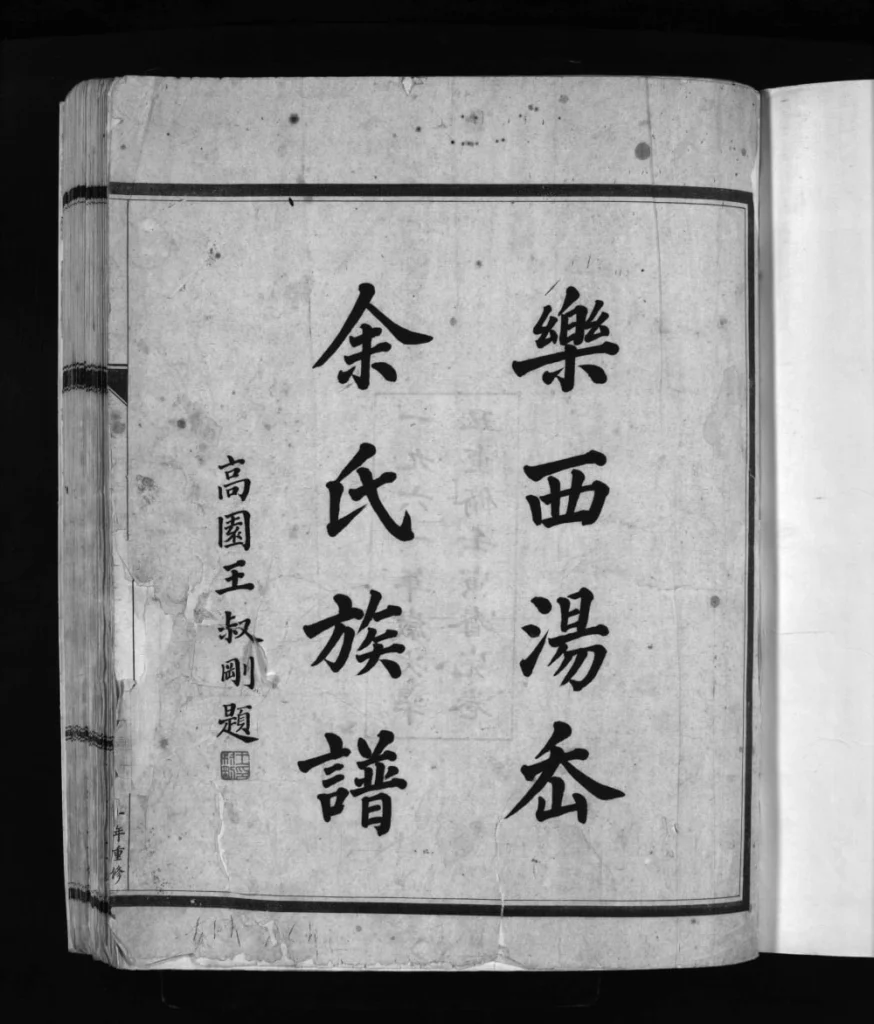 樂西湯岙
余氏族譜
高園王叔剛題
年重修